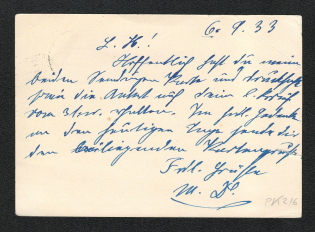 6. 9. 33
L. H.!
Hoffentlich hast du meine
beiden Sendungen Karte und Drucksache
sowie die Antwort auf dein
vom erhalten. Im
an den heutigen Tage sende dir
den beiliegenden Kartengruß.
Frdl. Grüße
M. D.
PK 216